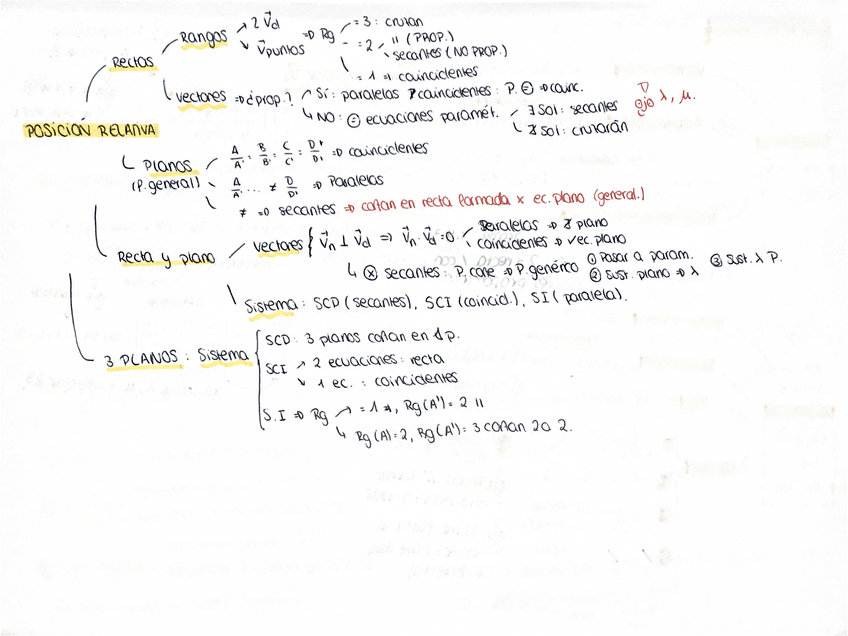 POSICION RELATIVA
Rectas
Rangos
2 V⃗d
V⃗puntos
⇒ Rg
= 3 : cruzan
= 2
" (PROP.)
secantes (NO PROP.)
= 1 ⇒ coincidentes
Vectores ⇒ ¿prop.?
Sí : paralelos coincidentes : P. = ⇒ coinc.
NO : = ecuaciones paramét.
∃ sol : secantes
∄ sol : cruzarán
ojo λ, μ.
Planos
(P. general)
A/A' = B/B' = C/C' = D/D' ⇒ coincidentes
A/A' ... ≠ D/D' ⇒ Paralelos
≠ ⇒ secantes ⇒ cortan en recta formada x ec. plano (general.)
Recta y plano
Vectores { V⃗n ⊥ V⃗d ⇒ V⃗n · V⃗d = 0
paralelas ⇒ ∄ plano
coincidentes ⇒ ✓ ec. plano
⊗ secantes : P. corte ⇒ P. genérico ① Pasar a param. ② Sust. plano ⇒ λ ③ Sust. λ P.
Sistema : SCD (secantes), SCI (coincid.), SI (paralela).
3 PLANOS : Sistema
SCD : 3 planos cortan en 1 p.
SCI
2 ecuaciones : recta
1 ec. : coincidentes
S.I ⇒ Rg
= 1 , Rg (A') = 2 ||
Rg (A) = 2, Rg (A') = 3 cortan 2 a 2.